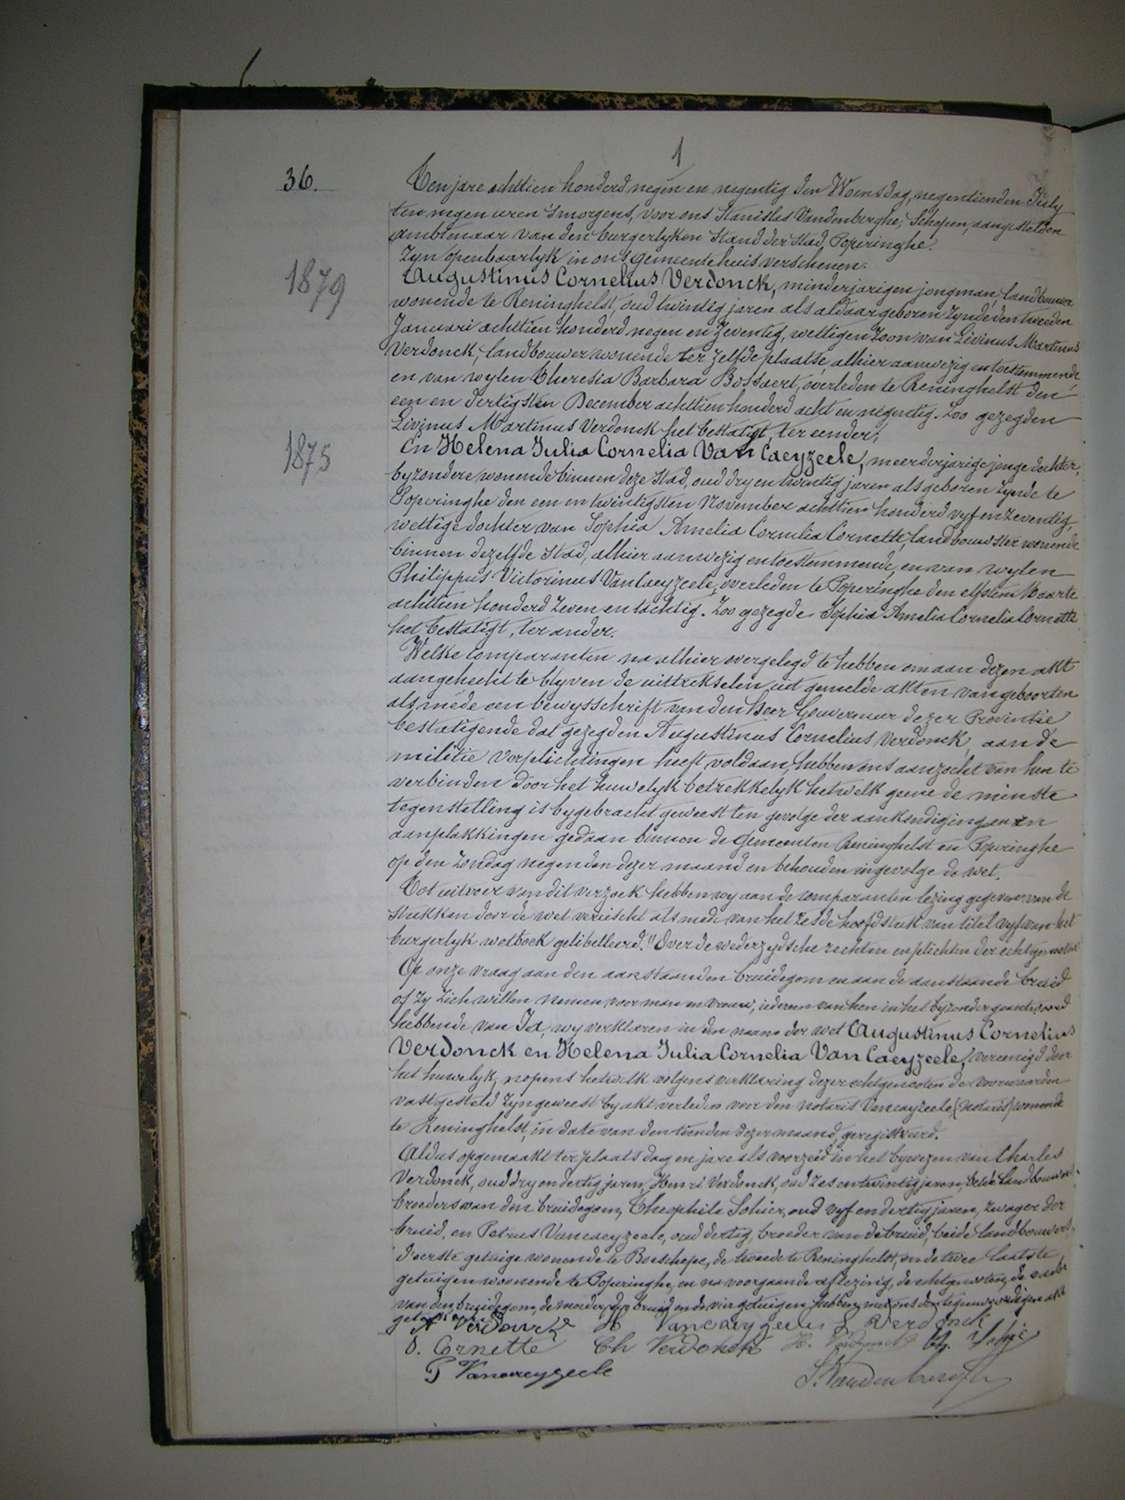 1
36.
Ten jare achttien honderd negen en negentig den Woensdag, negentienden July
ten negen uren 's morgens, voor ons Stanislas Vandenberghe, Schepen, aangestelden
ambtenaar van den burgerlyken Stand der stad Poperinghe.
Zyn openbaarlyk in ons gemeentehuis verschenen:
1879
Augustinus Cornelius Verdonck, minderjarigen jongman landbouwer
wonende te Reninghelst, oud twintig jaren als aldaar geboren zynde den tweeden
Januari achttien honderd negen en zeventig, wettigen zoon van Livinus Martinus
Verdonck, landbouwer wonende ter zelfde plaatse, alhier aanwezig en toestemmende,
en van wylen Theresia Barbara Bossaert, overleden te Reninghelst den
een en dertigsten December achttien honderd acht en negentig. Zoo gezegden
Livinus Martinus Verdonck het bestatigt, ter eender,
1875
En Helena Julia Cornelia Van Caeyzeele, meerderjarige jonge dochter,
byzondere wonende binnen deze stad, oud dry en twintig jaren als geboren zynde te
Poperinghe den een en twintigsten November achttien honderd vyf en zeventig,
wettige dochter van Sophia Amelia Cornelia Cornette, landbouwster wonende
binnen dezelfde stad, alhier aanwezig en toestemmende, en van wylen
Philippus Victorinus Van Caeyzeele, overleden te Poperinghe den elfsten Maarte
achttien honderd zeven en tachtig. Zoo gezegde Sophia Amelia Cornelia Cornette
het bestatigt, ter ander.
Welke comparanten na alhier overgelegd te hebben om aan dezen akt
aangehecht te blyven de uittrekselen uit gemelde akten van geboorten
als mede een bewysschrift van den Heer Gouverneur dezer Provintie
bestatigende dat gezegden Augustinus Cornelius Verdonck, aan de
militie verplichtingen heeft voldaan, hebben ons aanzocht van hen te
verbinden door het huwelyk betrekkelyk hetwelk geene de minste
tegenstelling is bygebracht geweest ten gevolge der aankondigingen en
aanplakkingen gedaan binnen de Gemeenten Reninghelst en Poperinghe
op den zondag negenden dezer maand en behouden ingevolge de wet.
Tot uitvoer van dit verzoek hebben wy aan de comparanten lezing gegeven van de
stukken door de wet vereischt als mede van het zesde hoofdstuk van titel vyf van het
burgerlyk wetboek getitelleerd: "Over de wederzydsche rechten en plichten der echtgenooten"
Op onze vraag aan den aanstaanden bruidegom en aan de aanstaande bruid
of zy zich willen nemen voor man en vrouw, iedereen van hen in het byzonder geantwoord
hebbende van Ja, wy verklaren in den naam der wet Augustinus Cornelius
Verdonck en Helena Julia Cornelia Van Caeyzeele, vereenigd door
het huwelyk, nopens hetwelk volgens verklaring dezer echtgenooten de voorwaarden
vastgesteld zyn geweest by akt verleden voor den notaris Vancaeyzeele (Notaris) wonende
te Reninghelst, in date van den tienden dezer maand, geregistreerd.
Aldus opgemaakt ter plaats dag en jare als voorzeid in het bywezen van Charles
Verdonck, oud dry en dertig jaren, Henri Verdonck, oud zes en twintig jaren, beide landbouwers
broeders van den bruidegom, Theophile Sohier, oud vyf en dertig jaren, zwager der
bruid, en Petrus Vancaeyzeele, oud dertig, broeder van de bruid, beide landbouwers,
d'eerste getuige wonende te Boeschepe, de tweede te Reninghelst, en de twee laatste
getuigen woonende te Poperinghe, en na voorgaande aflezing, de echtgenooten, de vader
van den bruidegom, de moeder der bruid en de vier getuigen hebben met ons den tegenwoordigen akt
geteekend.
A Verdonck H Vancaeyzeele L Verdonck
S. Cornette Ch Verdonck H. Verdonck Th. Sohier
P Vancaeyzeele S. Vandenberghe